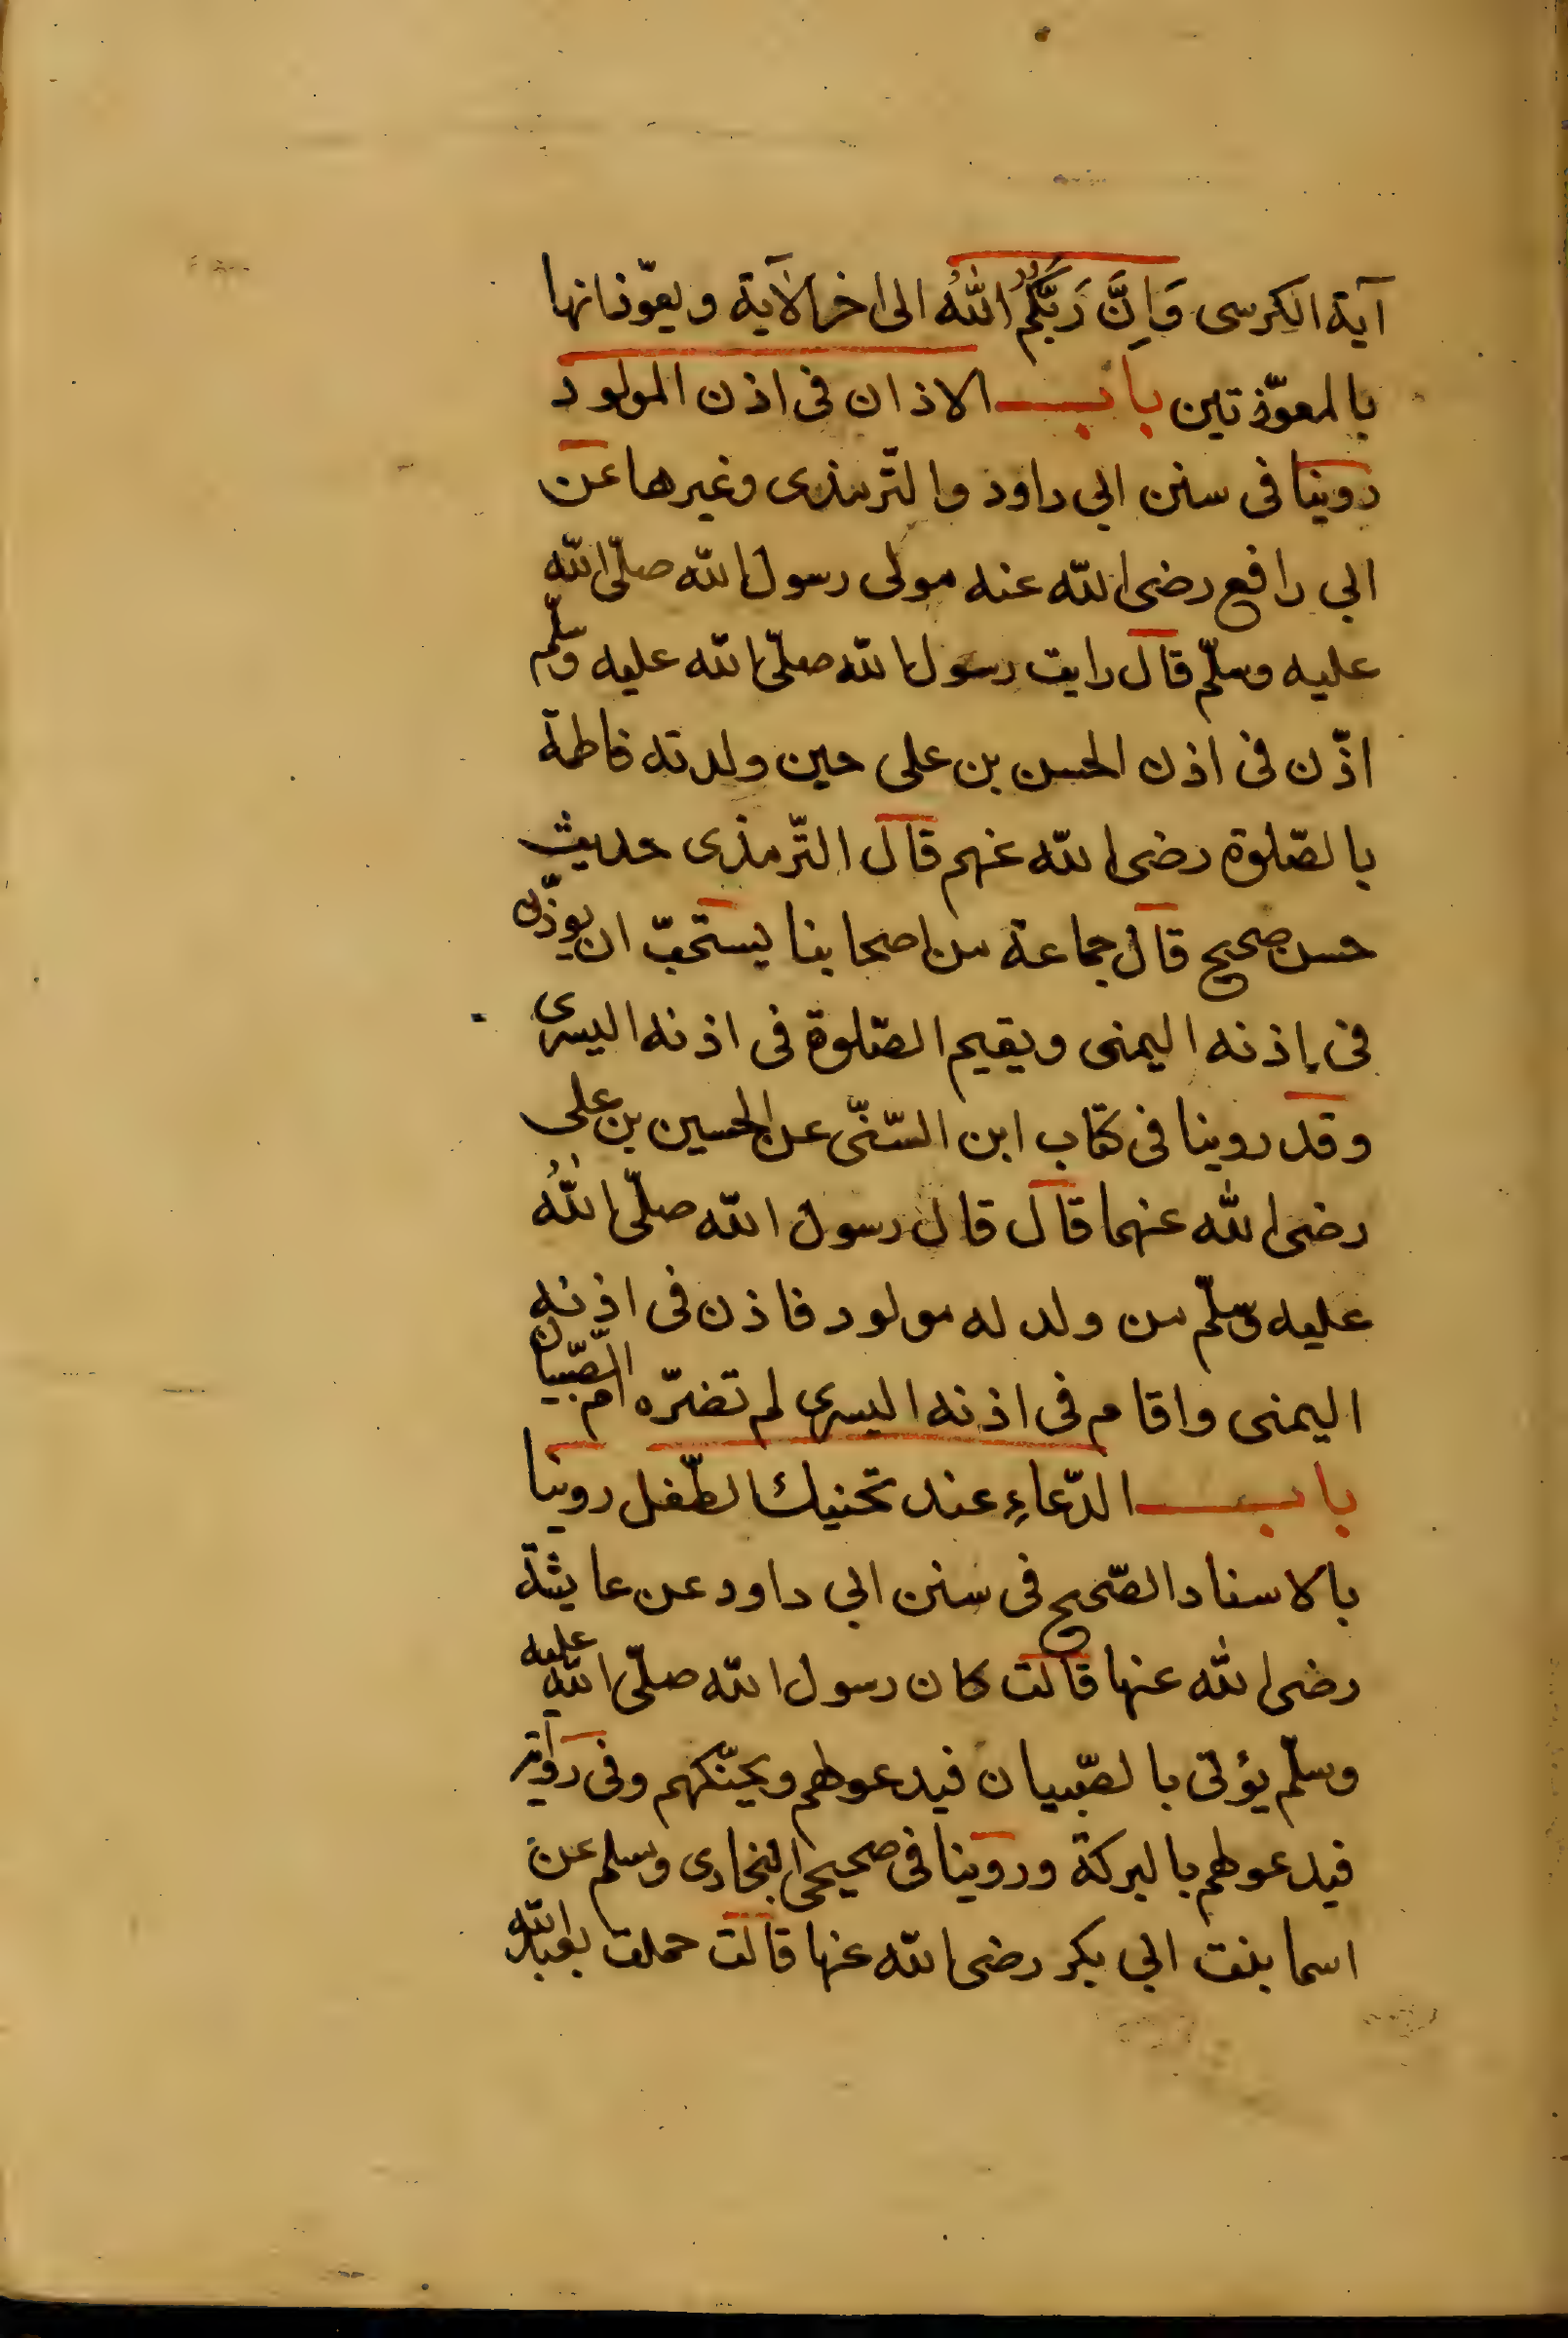 آية الكرسى وَاِنَّ رَبَّكُمُ اللّٰهُ الى اخر الآية ويعوّذانها
بالمعوّذتين باب الاذان فى اذن المولود
روينا فى سنن ابي داود والتّرمذى وغيرها عن
ابي رافع رضى الله عنه مولى رسول الله صلّى الله
عليه وسلّم قال رايت رسول الله صلّى الله عليه وسلّم
اذّن فى اذن الحسن بن على حين ولدته فاطمة
بالصّلوة رضى الله عنهم قال التّرمذى حديث
حسن صحيح قال جماعة من اصحابنا يستحبّ ان يوذّن
فى اذنه اليمنى ويقيم الصّلوة فى اذنه اليسرى
وقد روينا فى كتاب ابن السّنّى عن الحسين بن على
رضى الله عنهما قال قال رسول الله صلّى اللّٰهُ
عليه وسلّم من ولد له مولود فاذن فى اذنه
اليمنى واقام فى اذنه اليسرى لم تضرّه امّ الصّبيان
باب الدّعاءِ عند تحنيك الطّفل روينا
بالاسناد الصّحيح فى سنن ابي داود عن عايشة
رضى الله عنها قالت كان رسول الله صلّى الله عليه
وسلّم يؤتى بالصّبيان فيدعولهم ويحنّكهم وفى رواية
فيدعولهم بالبركة وروينا فى صحيحى البخارى ومسلم عن
اسما بنت ابي بكر رضى الله عنها قالت حملت بعبدالله